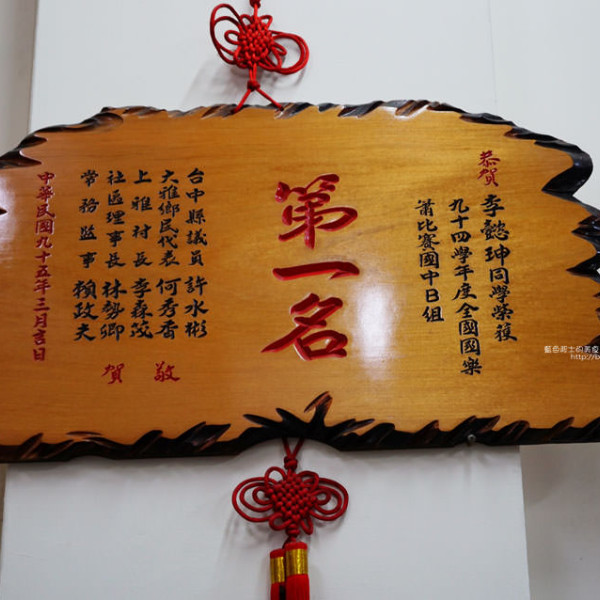 恭賀
李懿珅同學榮獲
九十四學年度全國國樂
簫比賽國中B組
第一名
台中縣議員 許水彬
大雅鄉民代表 何秀香
上雅村長 李森茂
社區理事長 林勢卿
常務監事 賴政夫
敬賀
中華民國九十五年三月吉日